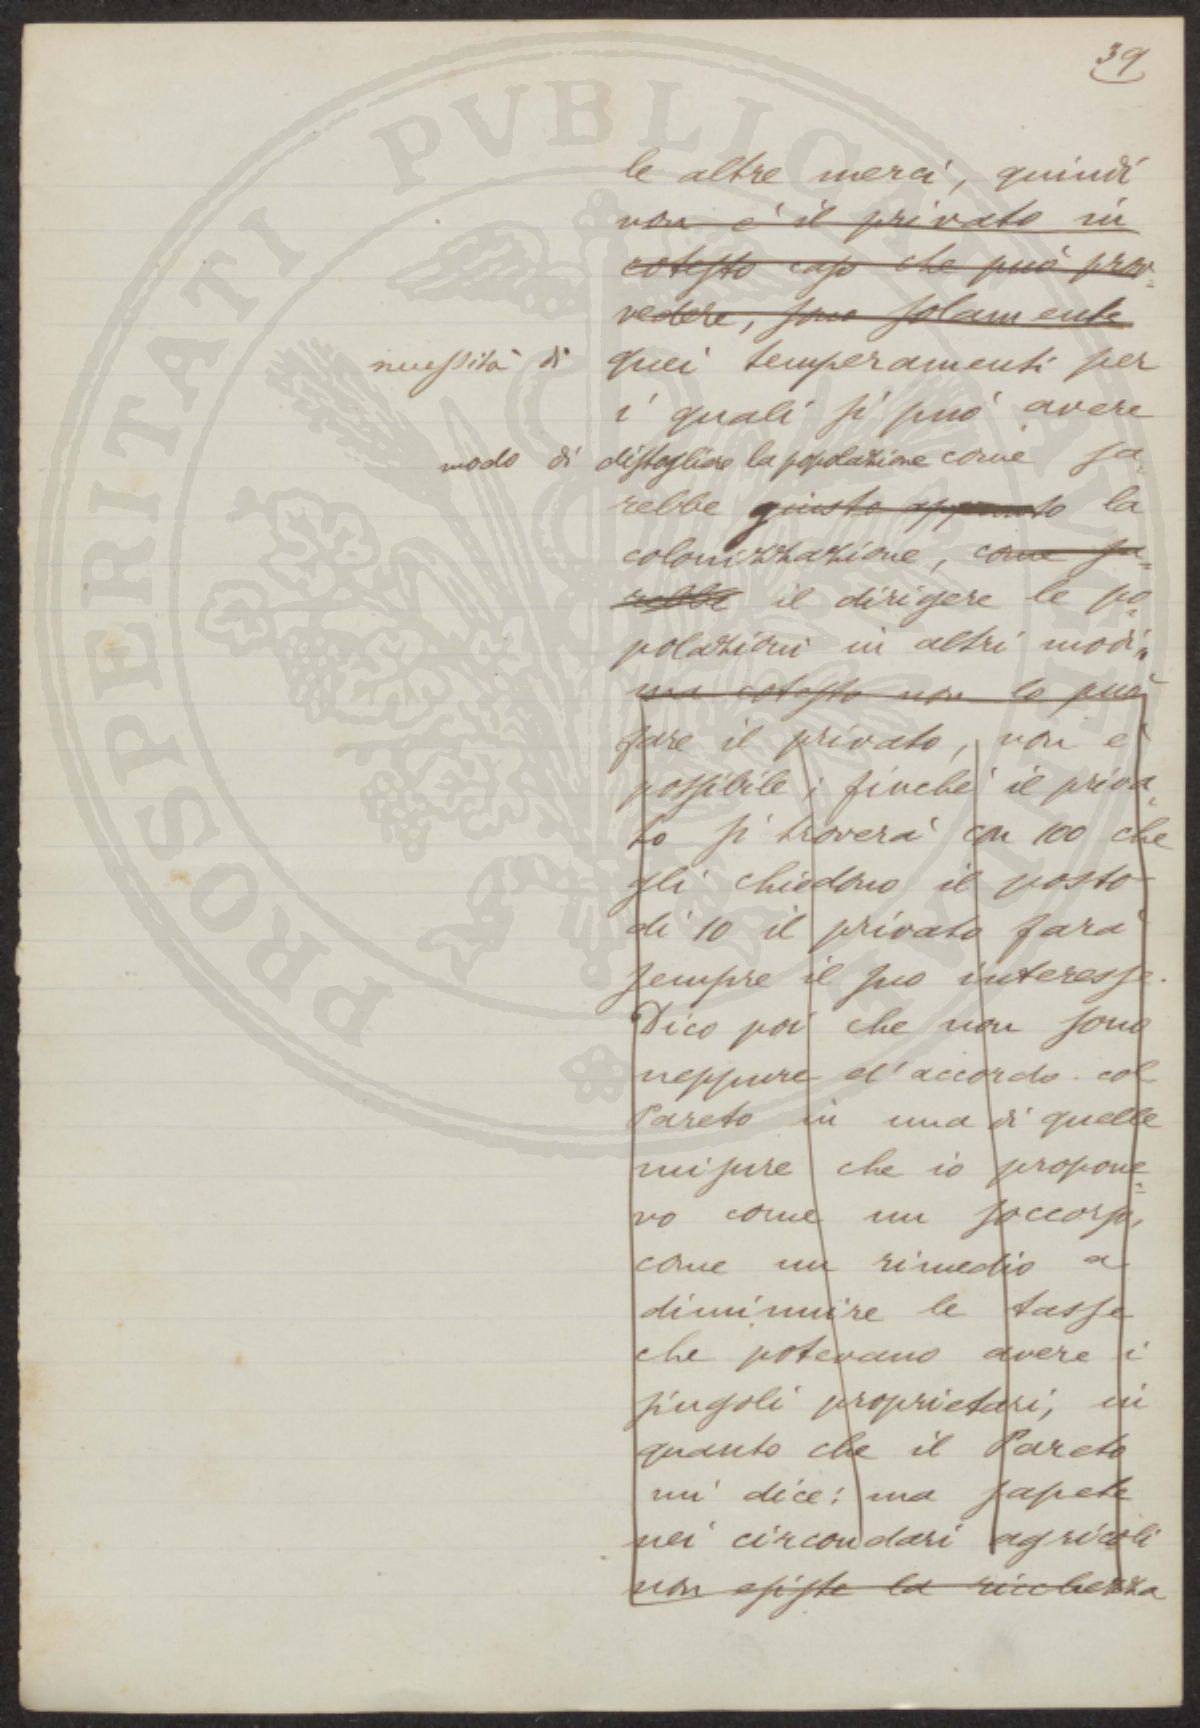 39
le altre merci, quindi
non è il privato in
cotesto caso che può prov-
vedere, sono solamente
necessità di quei temperamenti per
i quali si può avere
modo di distogliere la popolazione come sa-
rebbe giusto appunto la
colonizzazione, come sa-
rebbe il dirigere le po-
polazioni in altri modi,
ma cotesto non lo può
fare il privato, non è
possibile; finché il priva-
to si troverà con 100 che
gli chiedono il posto
di 10 il privato farà
sempre il suo interesse.
Dico poi che non sono
neppure d'accordo col
Pareto in una di quelle
misure che io propone-
vo come un soccorso,
come un rimedio a
diminuire le tasse
che potevano avere i
singoli proprietari, in
quanto che il Pareto
mi dice: ma sapete
nei circondari agricoli
non esiste la ricchezza
PROSPERITATI PVBLICAE